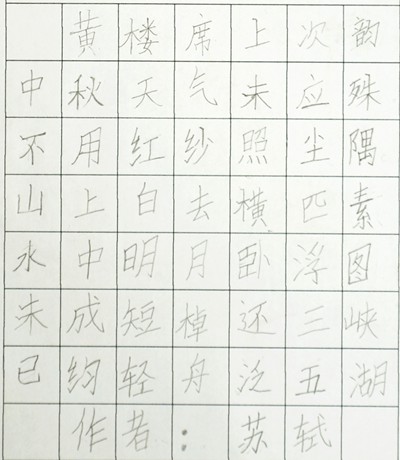 黄楼席上次韵
中秋天气未应殊
不用红纱照尘隅
山上白去横匹素
水中明月卧浮图
未成短棹还三峡
已约轻舟泛五湖
作者：苏轼